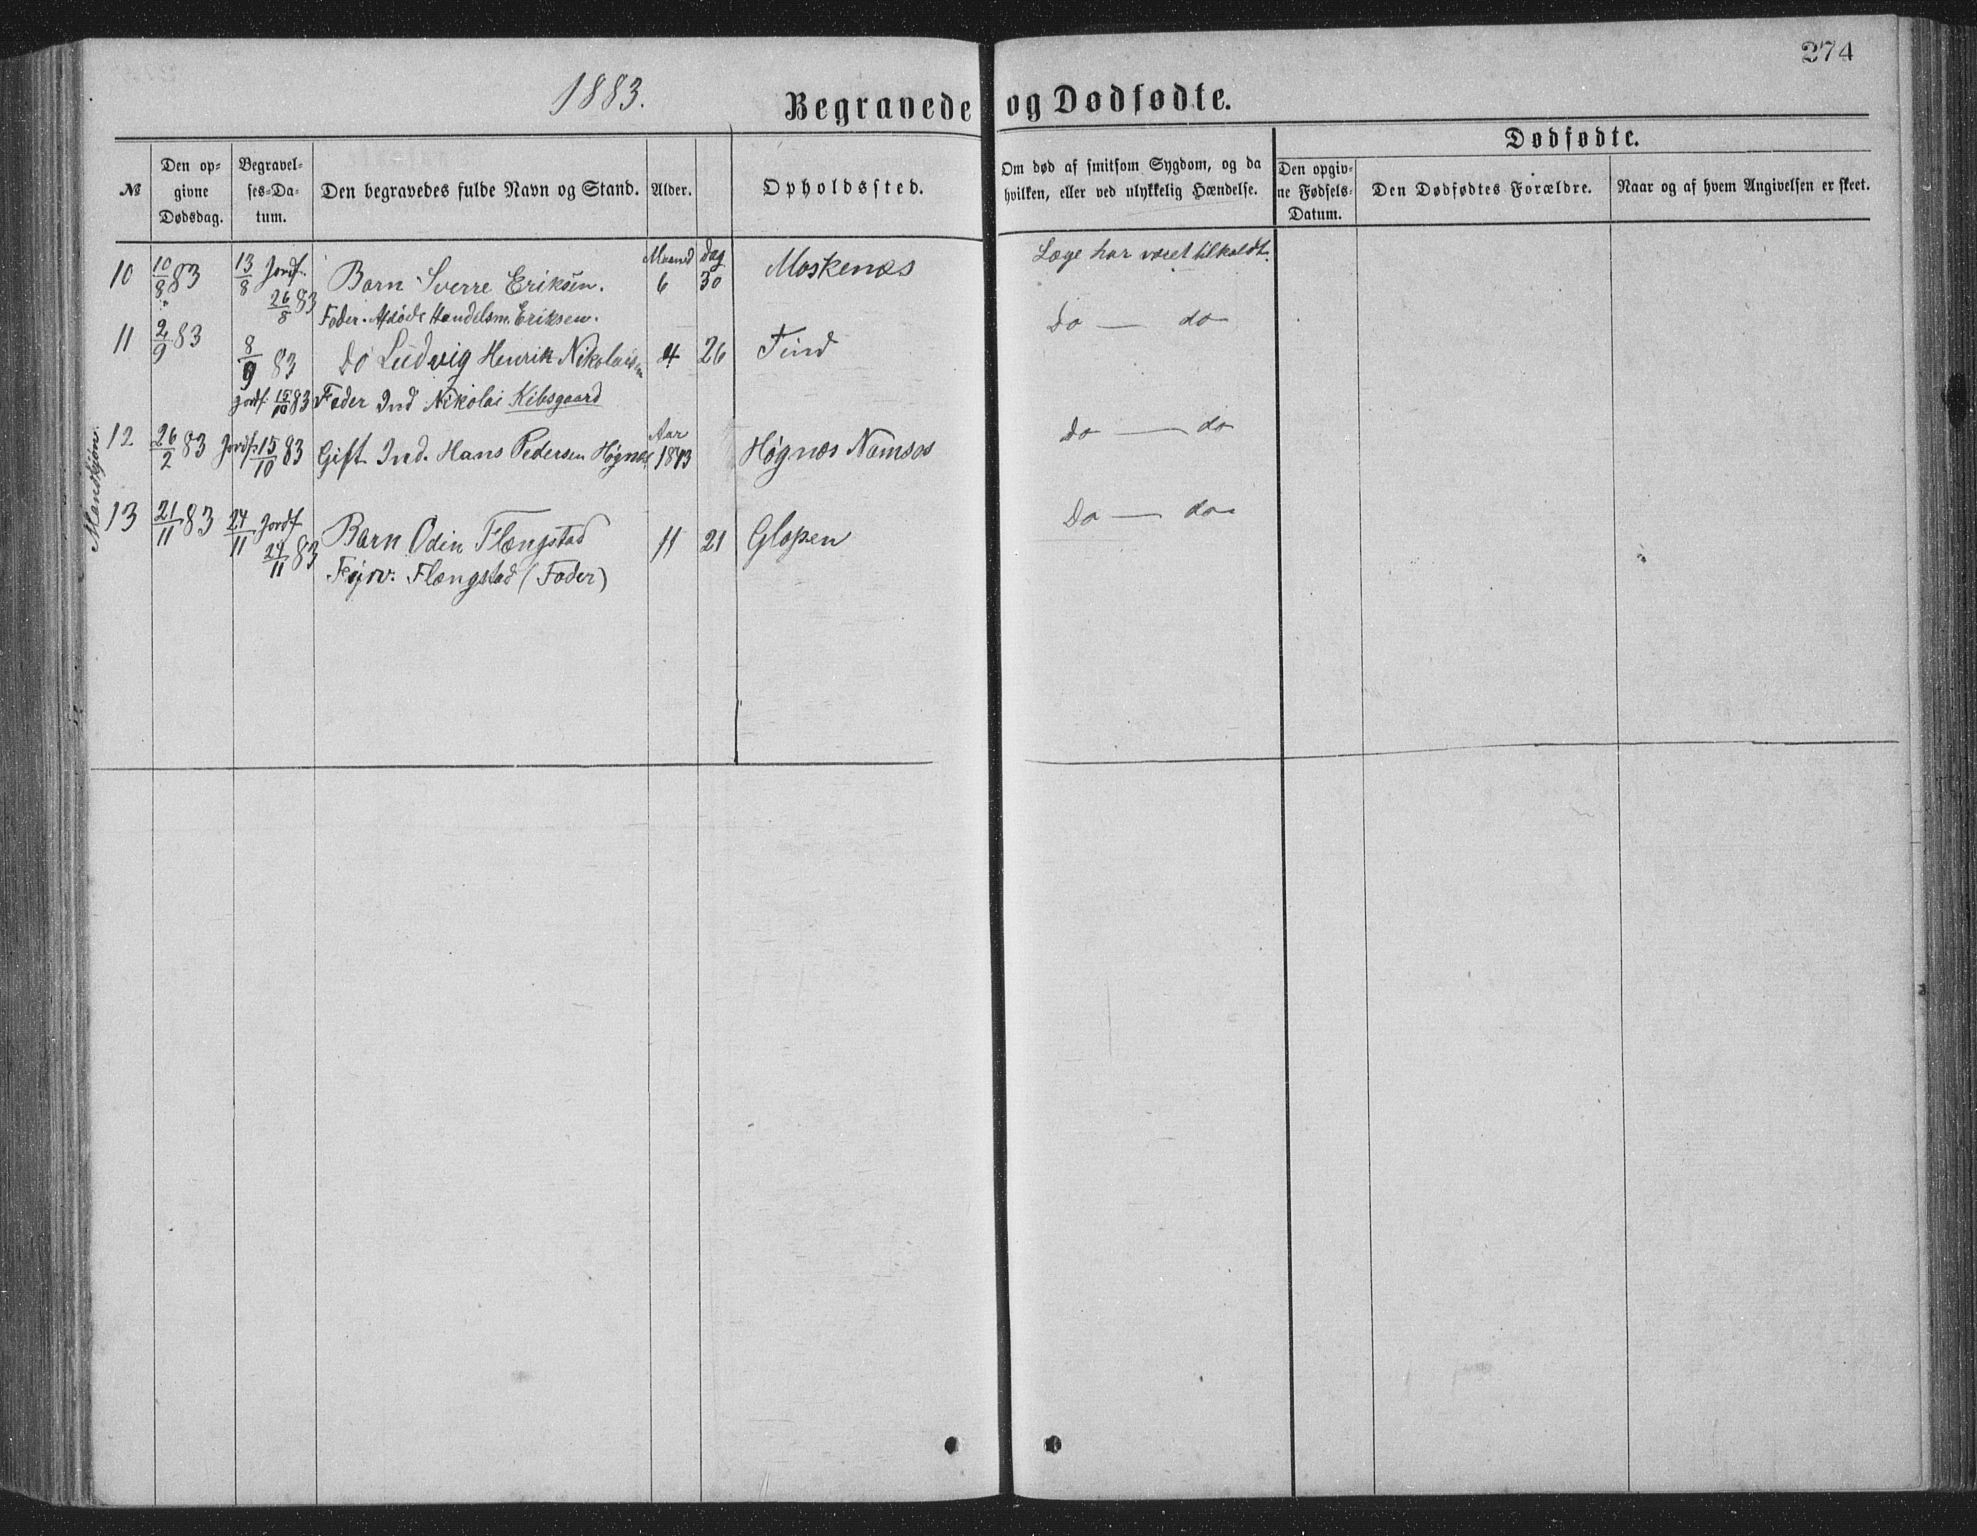 274
1883.
Begravede og Dødfødte.
№
Den op-
givne
Dødsdag.
Begravel-
ses-Da-
tum.
Den begravedes fulde Navn og Stand.
Alder.
Opholdssted.
Om død af smitsom Sygdom, og da
hvilken, eller ved ulykkelig Hændelse.
Dødfødte.
Den opgiv-
ne Fødsels-
Datum.
Den Dødfødtes Forældre.
Naar og af hvem Angivelsen er skeet.
Maaned Dag
10 10/8 83 13/8 Jordf. Barn Sverre Eriksen. 6 30 Moskenæs Læge har været tilkaldt.
26/8 83 Fader. Afdøde Handelsm. Eriksen.
11 2/9 83 8/9 83 Do Ludvig Henrik Nikolaisen 4 26 Tind Do — do
Jordf. 15/10 83 Fader Ind Nikolai Kibsgaard
Aar
12 26/2 83 Jordf. 15/10 83 Gift. Ind. Hans Pedersen Høgnæs Høgnæs Namsos Do — do
13 21/11 83 24/11 Jordf. Barn Odin Flængstad 11 21 Glopen Do — do
24/11 83 Flængstad (Fader)